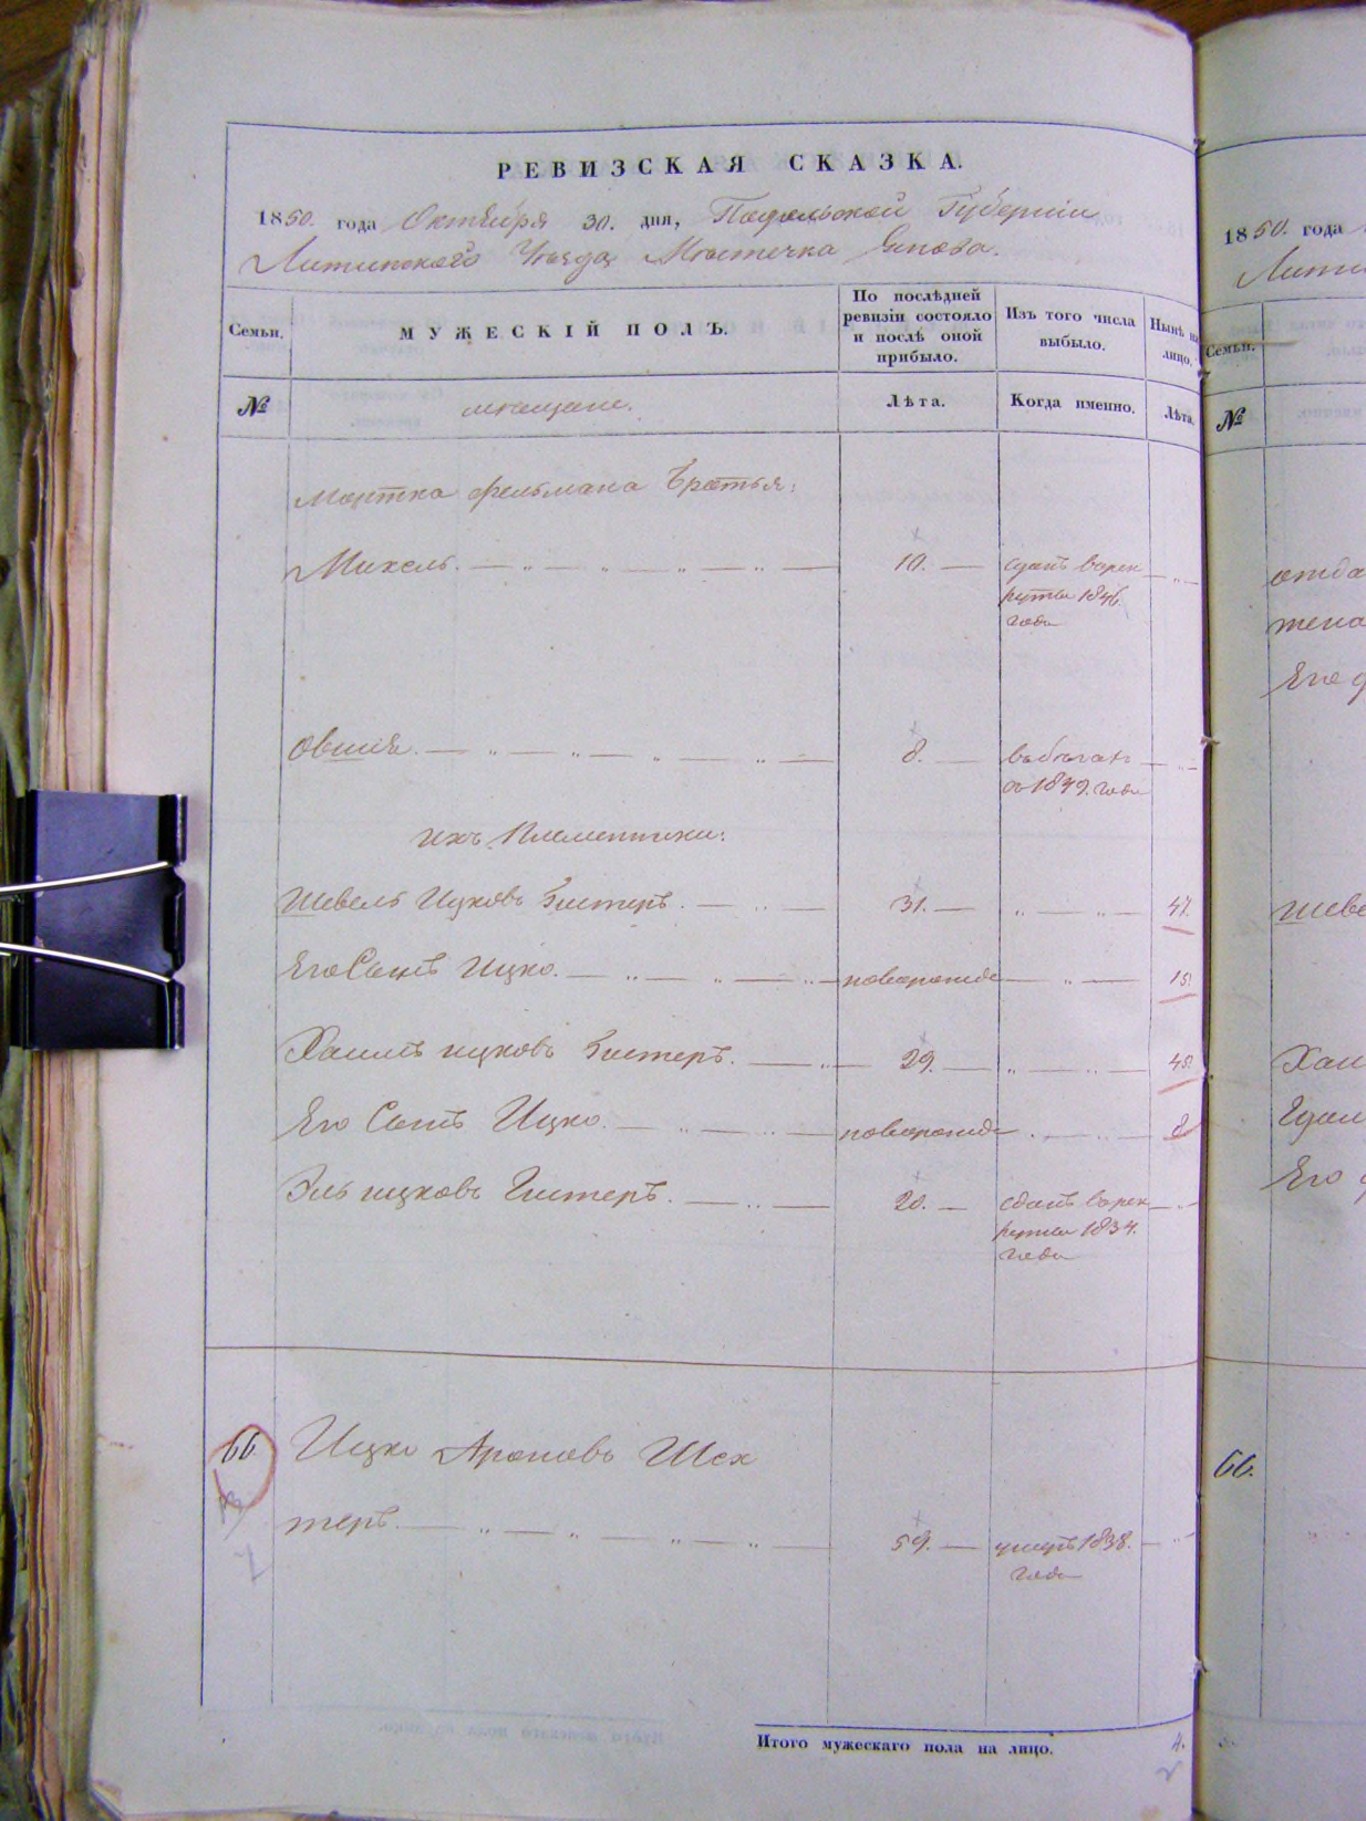 РЕВИЗСКАЯ СКАЗКА.
1850. года Октября 30. дня, Подольской Губернии
Литинского Уезда Местечка Янова.
Семьи.
МУЖЕСКІЙ ПОЛЪ.
По послѣдней ревизіи состояло и послѣ оной прибыло.
Изъ того числа выбыло.
Нынѣ на лицо.
№
мещане.
Лѣта.
Когда именно.
Лѣта.
Мортка Фельмана Братья:
Михель. 10. сданъ въ рек
руты 1846.
года
Овшія. 8. въ бегахъ
съ 1849. года
ихъ Племенники:
Шевель Ицковъ 31. 47.
Его Сынъ Ицко. новорожде 15.
Хаимъ ицковъ 29. 45.
Его Сынъ Ицко. новорожде 8
Эль ицковъ 20. сданъ въ рек
руты 1834.
года
66. Ицко Ароновъ Шех
теръ. 59. умеръ 1838.
года
Итого мужескаго пола на лицо. 4.
1850. года
Лити
Семьи.
№
отда
жена
Его
Шеве
Хаи
Его
66.